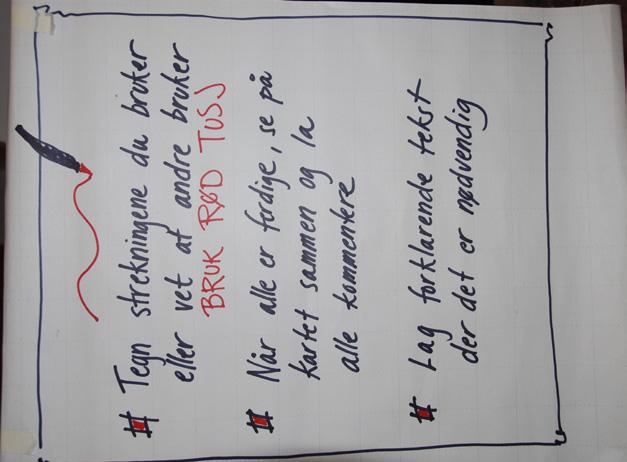 # Tegn strekningene du bruker
eller vet at andre bruker
BRUK RØD TUSJ
# Når alle er ferdige, se på
kartet sammen og la
alle kommentere
# Lag forklarende tekst
der det er nødvendig